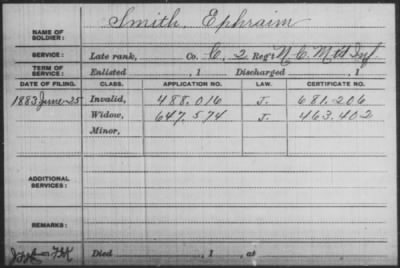 NAME OF SOLDIER: Smith, Ephraim
SERVICE: Late rank, Co. C, 2 Reg't N.C. Mtd Inf
TERM OF SERVICE: Enlisted , 1 Discharged , 1
DATE OF FILING. CLASS. APPLICATION NO. LAW. CERTIFICATE NO.
1883 June 25 Invalid, 488.016 J. 681.206
Widow, 647.574 J. 463.402
Minor,
ADDITIONAL SERVICES:
REMARKS:
Died , 1 , at